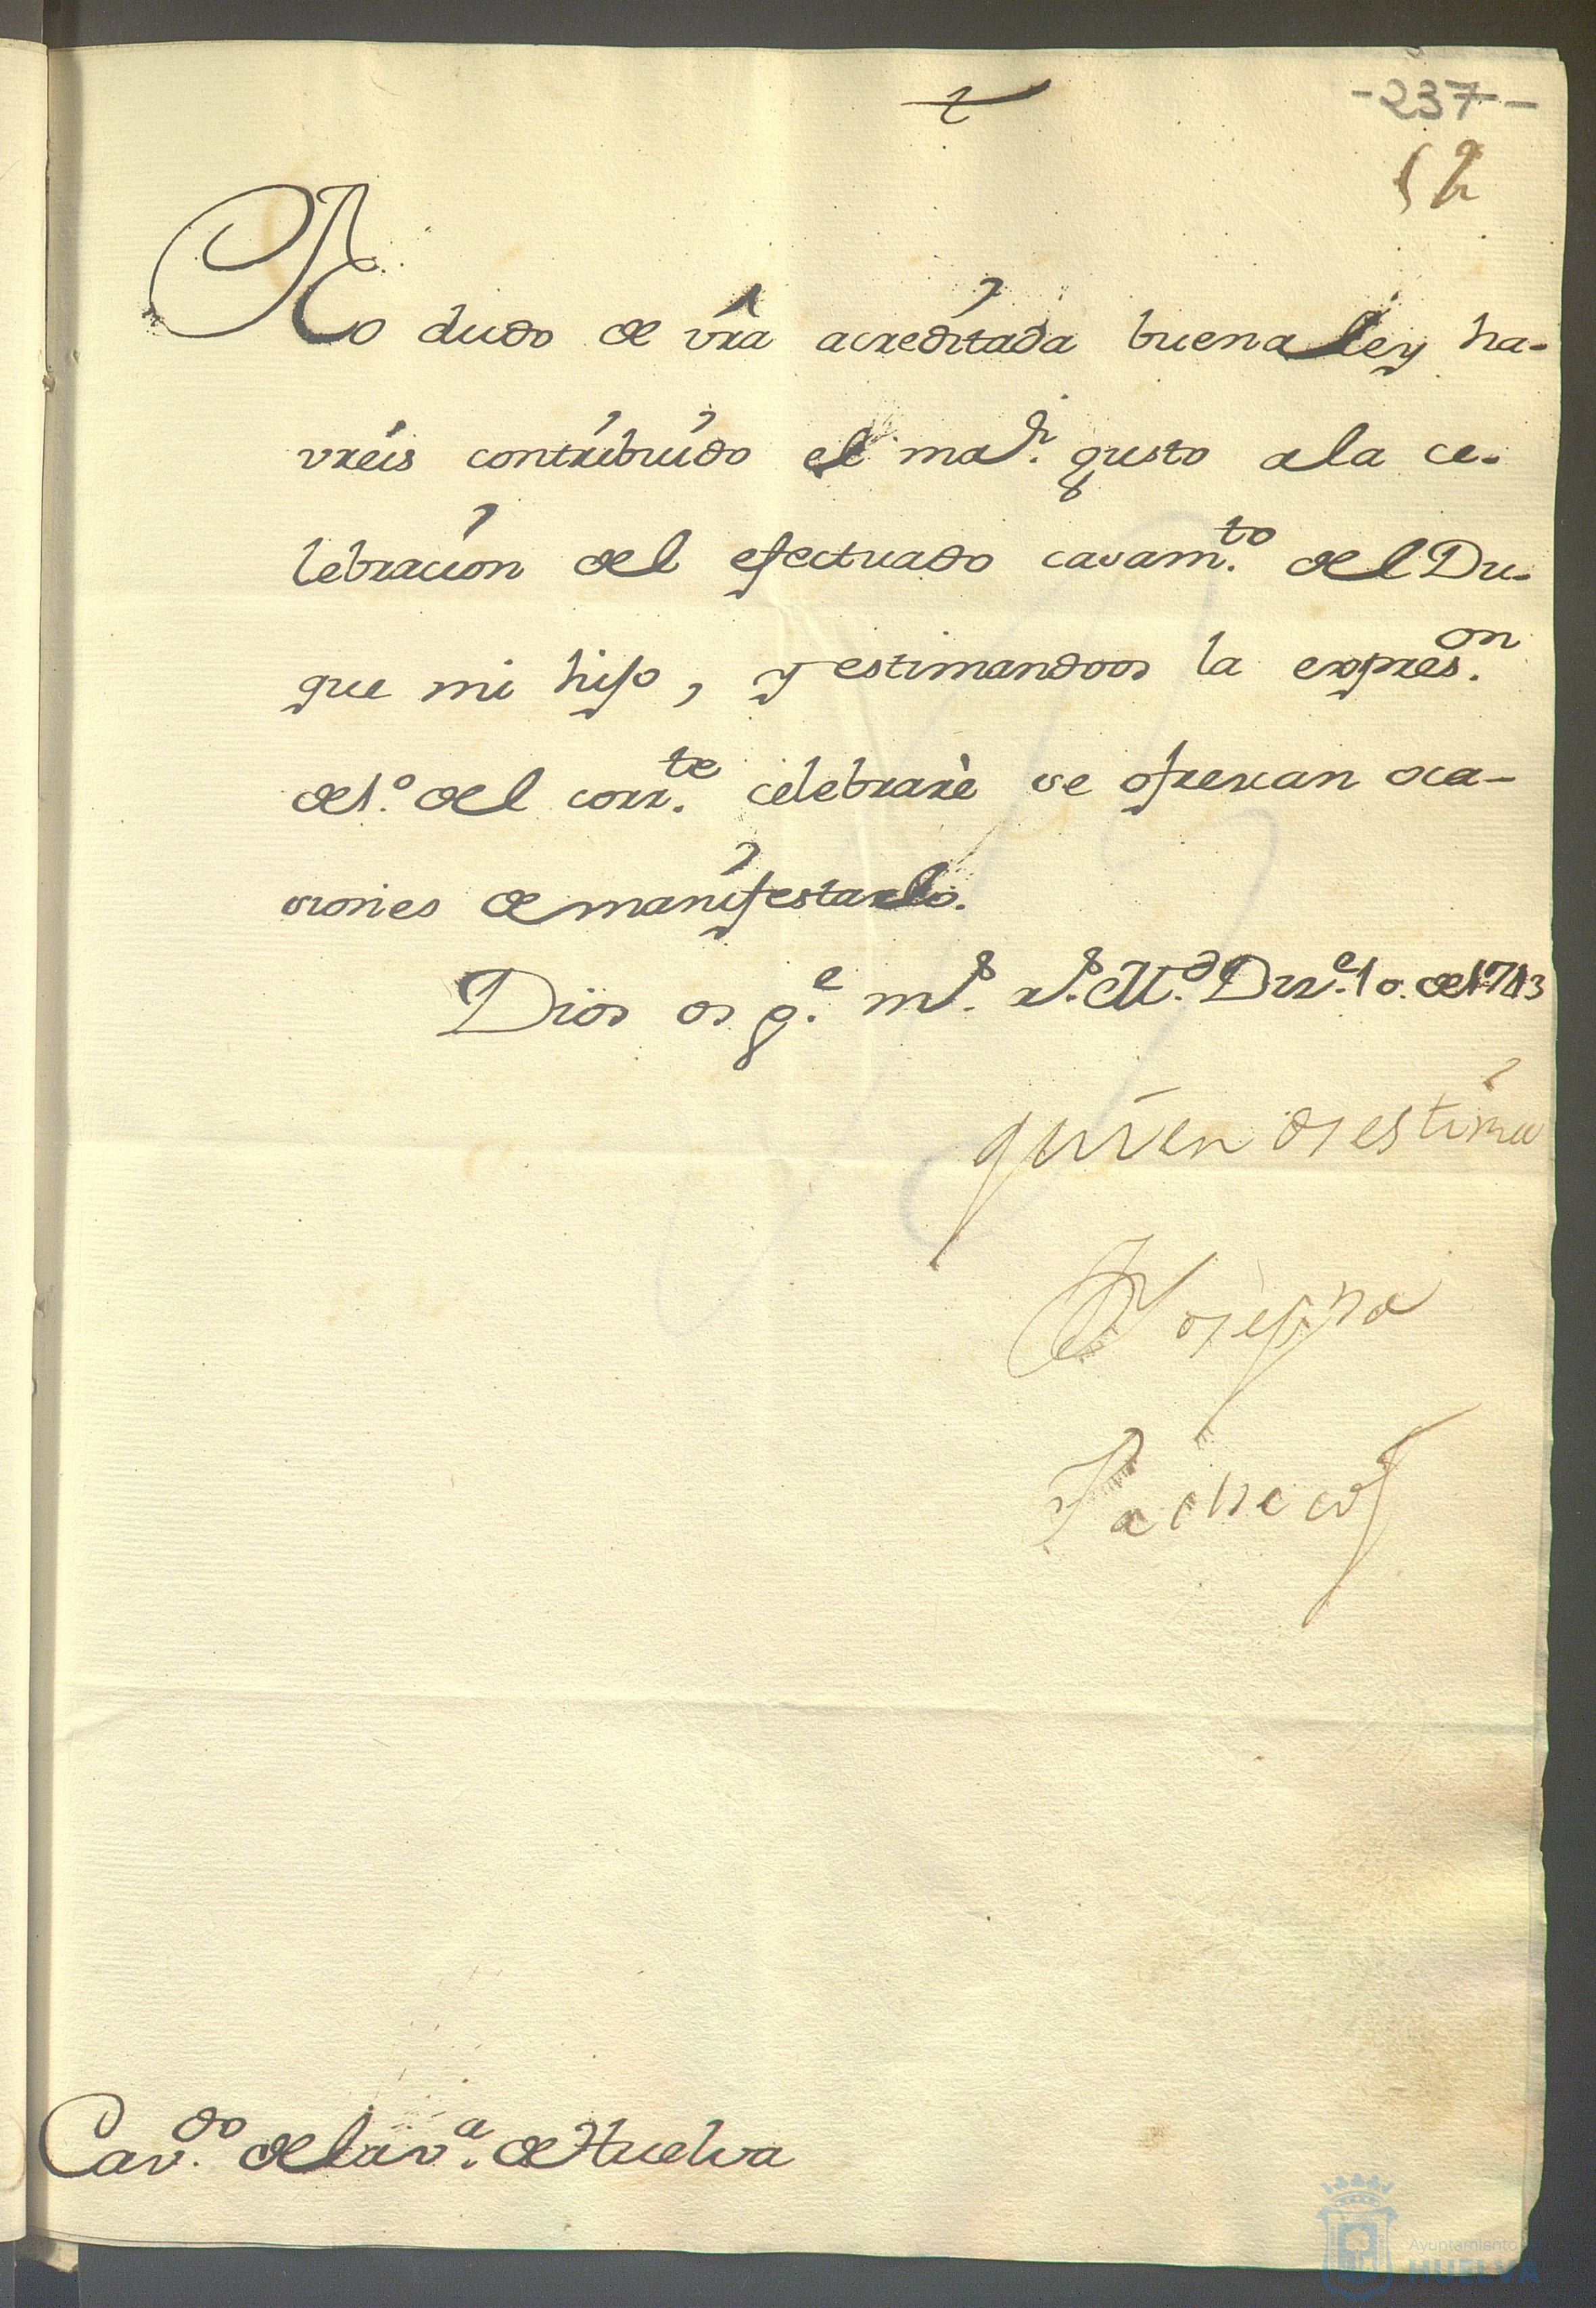 -237-
52
No dudo de vra acreditada buena ley ha-
vreis contribuido el maór. gusto a la ce-
lebracion del efectuado casam.to del Du-
que mi hijo, y estimandoos la expres.on
de 1.o del corr.te celebrarè se ofrescan oca-
siones de manifestarlo.
Dios os g.e m.s a.s M.d Dre. 10. de 1713
quien os estima
Josepha
Pacheco
Cav.do de la v.a de Huelva
Ayuntamiento
HUELVA